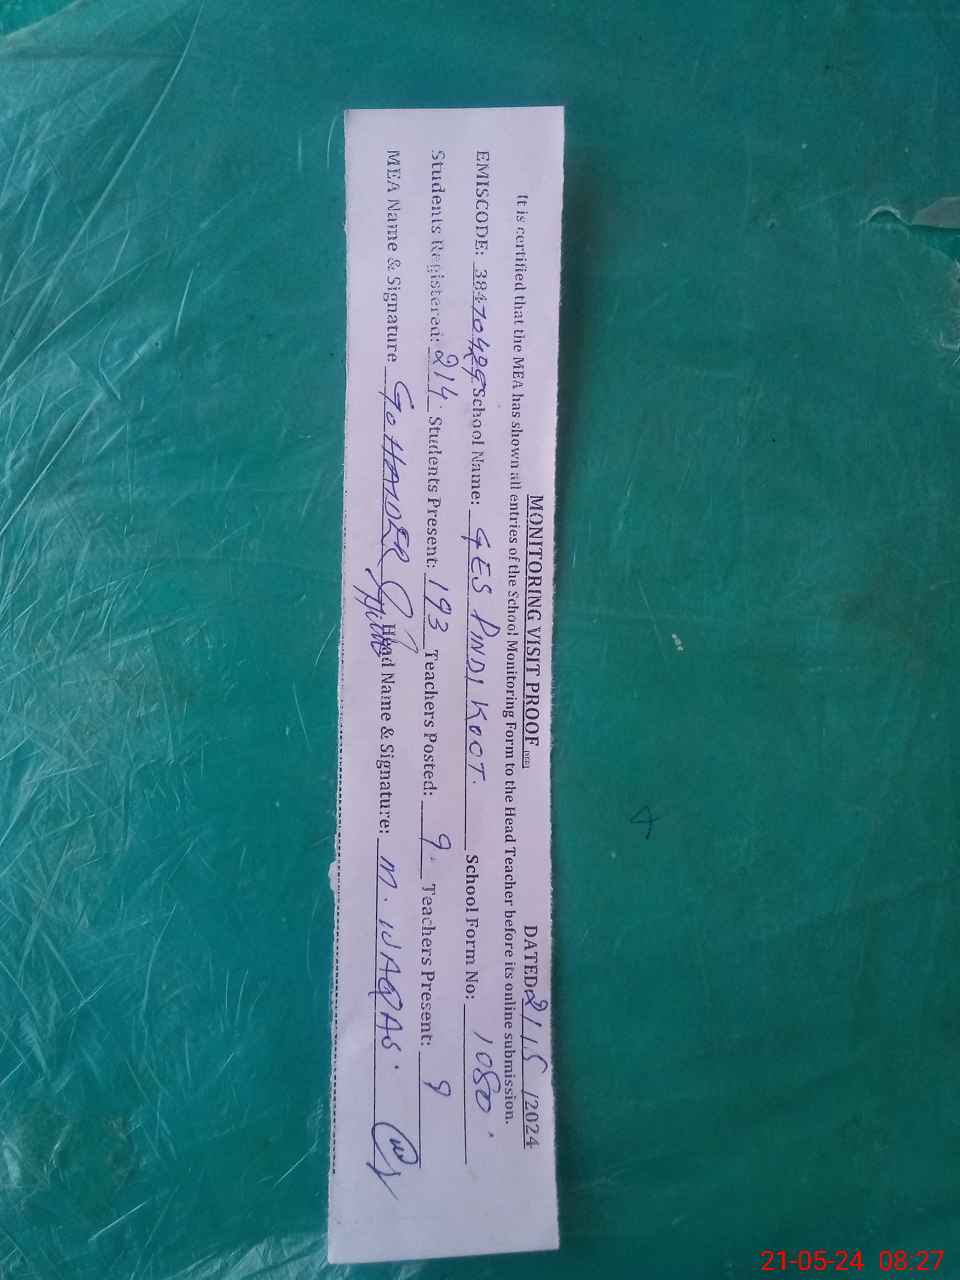 MONITORING VISIT PROOF DATED 21/5/2024
It is certified that the MEA has shown all entries of the School Monitoring Form to the Head Teacher before its online submission.
EMISCODE: 38470429 School Name: GES PINDI KOOT. School Form No: 1080.
Students Registered: 214. Students Present: 193 Teachers Posted: 9. Teachers Present: 9
MEA Name & Signature HAIDER Head Name & Signature: M. WAQAS.
21-05-24 08:27